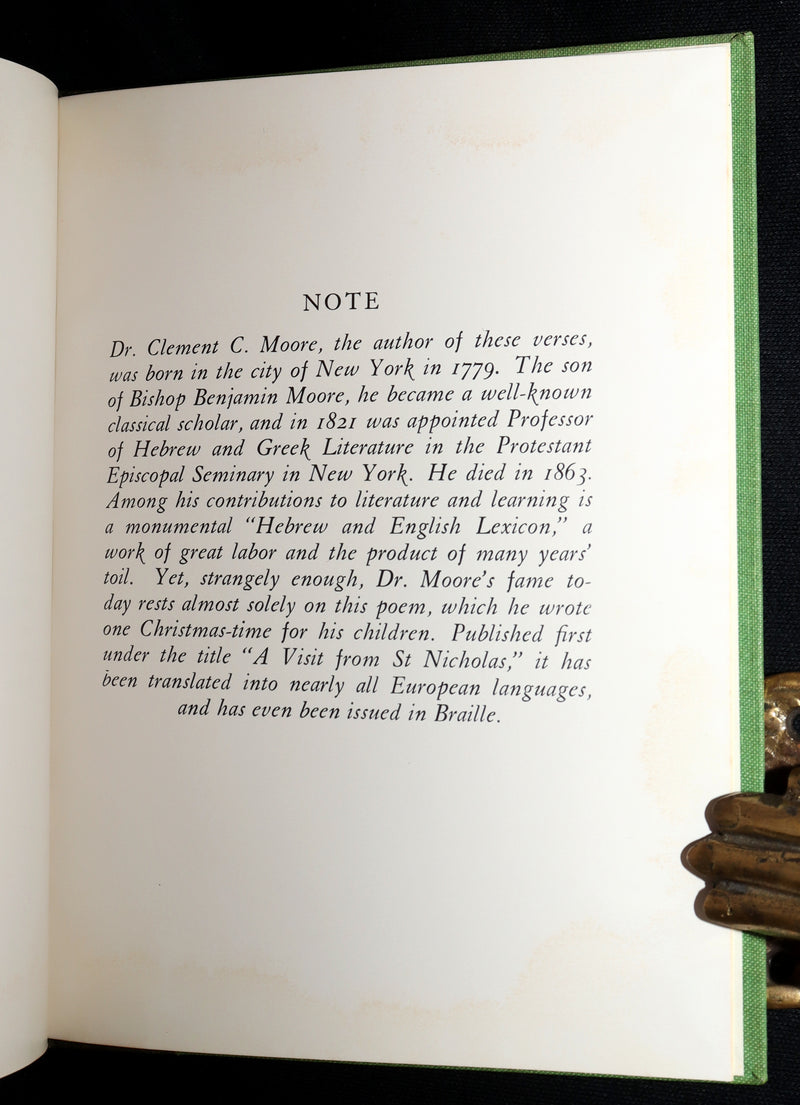 NOTE
Dr. Clement C. Moore, the author of these verses,
was born in the city of New York in 1779. The son
of Bishop Benjamin Moore, he became a well-known
classical scholar, and in 1821 was appointed Professor
of Hebrew and Greek Literature in the Protestant
Episcopal Seminary in New York. He died in 1863.
Among his contributions to literature and learning is
a monumental “Hebrew and English Lexicon,” a
work of great labor and the product of many years’
toil. Yet, strangely enough, Dr. Moore’s fame to-
day rests almost solely on this poem, which he wrote
one Christmas-time for his children. Published first
under the title “A Visit from St Nicholas,” it has
been translated into nearly all European languages,
and has even been issued in Braille.